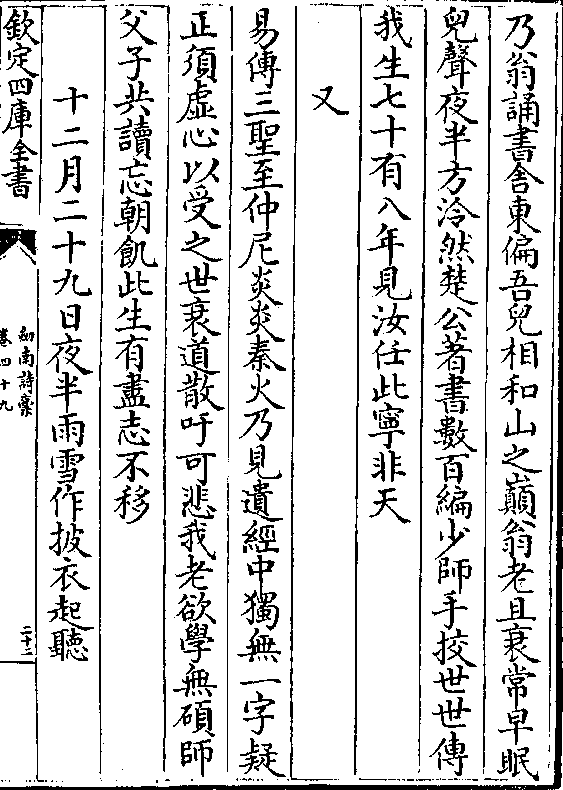 乃翁誦書舎東偏吾兒相和山之巔翁老且衰常早眠
兒聲夜半方泠然楚公著書數百編少師手挍世世傳
我生七十有八年見汝任此寧非天
又
易傳三聖至仲尼炎炎秦火乃見遺經中獨無一字疑
正須虚心以受之世衰道散吁可悲我老欲學無碩師
父子共讀忘朝飢此生有盡志不移
十二月二十九日夜半雨雪作披衣起聽
欽定四庫全書
劍南詩稾
卷四十九
二十三